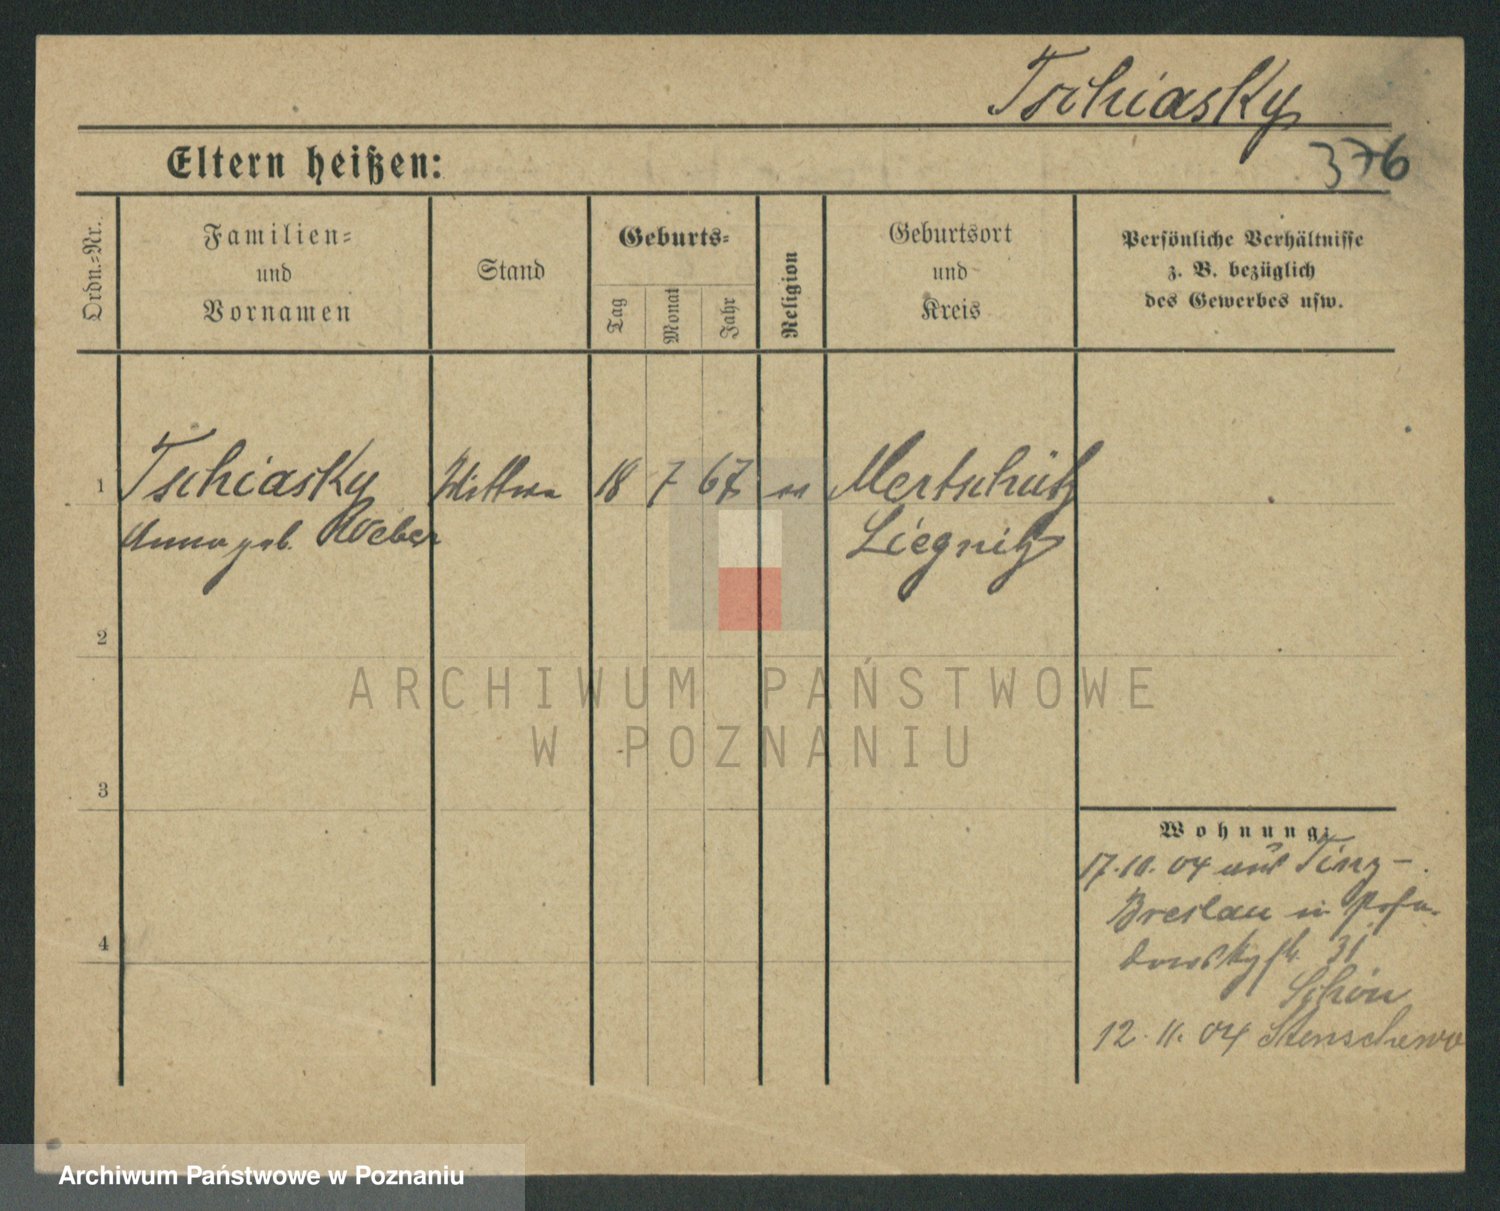 Tschiasky
376
Eltern heißen:
Ordn.=Nr.
Familien=
und
Vornamen
Stand
Geburts=
Tag
Monat
Jahr
Religion
Geburtsort
und
Kreis
Persönliche Verhältnisse
z. B. bezüglich
des Gewerbes usw.
1
Tschiasky
Anna geb. Roeber
Wittwe
18
7
67
Mertschütz
Liegnitz
2
3
4
Wohnung:
17.10.04 aus Tinz -
Breslau in
31
Schön
12.11.04 Stenschewo
ARCHIWUM PAŃSTWOWE
W POZNANIU
Archiwum Państwowe w Poznaniu